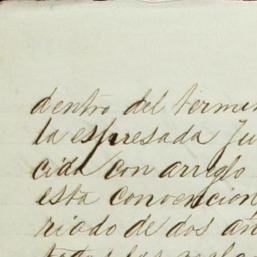 dentro del termin
la espresada Ju
cida con arreglo
esta convencion
riado de dos añ
todas las regla